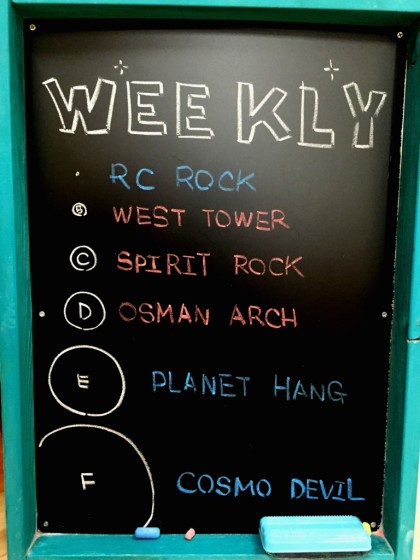 WEEKLY
RC ROCK
B WEST TOWER
C SPIRIT ROCK
D OSMAN ARCH
E PLANET HANG
F COSMO DEVIL